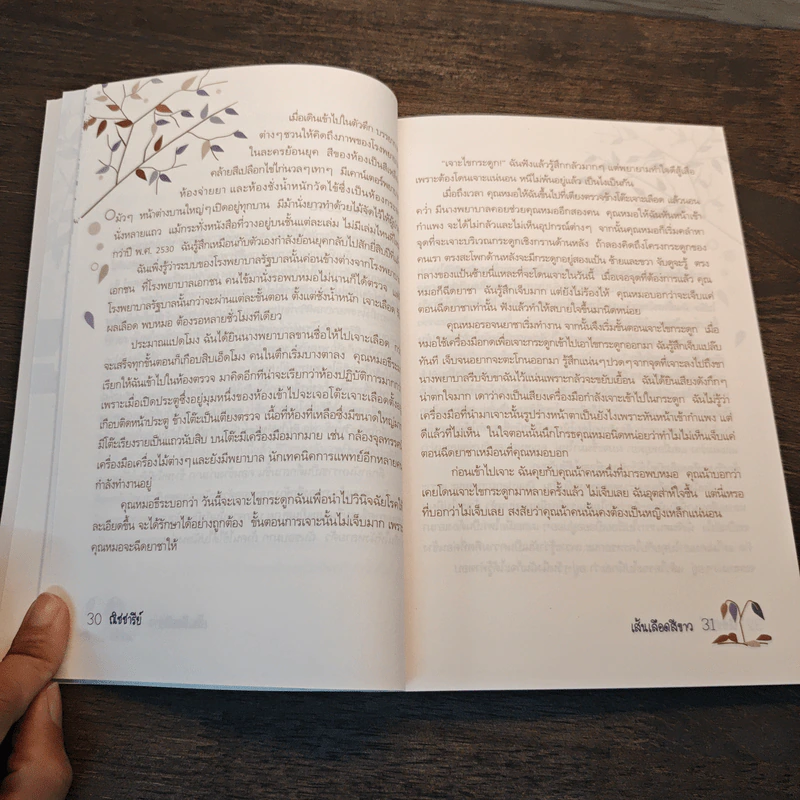 เมื่อเดินเข้าไปในตัวตึก
ต่างๆชวนให้คิดถึงภาพของโรงพยาบาล
ในละครย้อนยุค สีของห้องเป็นสี
คล้ายสีเปลือกไข่ไก่นวลๆเทาๆ มีเคาน์เตอร์
ห้องจ่ายยา และห้องชั่งน้ำหนักวัดไข้ซึ่งเป็นห้อง
มัวๆ หน้าต่างบานใหญ่ๆเปิดอยู่ทุกบาน มีม้านั่งยาวทำด้วยไม้จัดไว้ให้
นั่งหลายแถว แม้กระทั่งหนังสือที่วางอยู่บนชั้นแต่ละเล่ม ไม่มีเล่มไหน
กว่าปี พ.ศ. 2530 ฉันรู้สึกเหมือนกับตัวเองกำลังย้อนยุคกลับไป
ฉันเพิ่งรู้ว่าระบบของโรงพยาบาลรัฐบาลนั้นค่อนข้างต่างจากโรงพยาบาล
เอกชน ที่โรงพยาบาลเอกชน คนไข้มานั่งรอพบหมอไม่นานก็ได้ตรวจ
โรงพยาบาลรัฐบาลนั้นกว่าจะผ่านแต่ละขั้นตอน ตั้งแต่ชั่งน้ำหนัก เจาะเลือด
ผลเลือด พบหมอ ต้องรอหลายชั่วโมงทีเดียว
ประมาณแปดโมง ฉันได้ยินนางพยาบาลขานชื่อให้ไปเจาะเลือด
จะเสร็จทุกขั้นตอนก็เกือบสิบเอ็ดโมง คนในตึกเริ่มบางตาลง คุณหมอธีระ
เรียกให้ฉันเข้าไปในห้องตรวจ มาคิดอีกทีน่าจะเรียกว่าห้องปฏิบัติการมากกว่า
เพราะเมื่อเปิดประตูซึ่งอยู่มุมหนึ่งของห้องเข้าไปจะเจอโต๊ะเจาะเลือดตั้งอยู่
เกือบติดหน้าประตู ข้างโต๊ะเป็นเตียงตรวจ เนื้อที่ห้องที่เหลือซึ่งมีขนาดใหญ่
มีโต๊ะเรียงรายเป็นแถวนับสิบ บนโต๊ะมีเครื่องมือมากมาย เช่น กล้องจุลทรรศน์
เครื่องมือเครื่องไม้ต่างๆและยังมีพยาบาล นักเทคนิคการแพทย์อีกหลายคน
กำลังทำงานอยู่
คุณหมอธีระบอกว่า วันนี้จะเจาะไขกระดูกฉันเพื่อนำไปวินิจฉัยโรค
ละเอียดขึ้น จะได้รักษาได้อย่างถูกต้อง ขั้นตอนการเจาะนั้นไม่เจ็บมาก เพราะ
คุณหมอจะฉีดยาชาให้
30 ณิชชารีย์
"เจาะไขกระดูก!" ฉันฟังแล้วรู้สึกกลัวมากๆ แต่พยายามทำใจดีสู้เสือ
เพราะต้องโดนเจาะแน่นอน หนีไม่พ้นอยู่แล้ว เป็นไงเป็นกัน
เมื่อถึงเวลา คุณหมอให้ฉันขึ้นไปที่เตียงตรวจข้างโต๊ะเจาะเลือด แล้วนอน
คว่ำ มีนางพยาบาลคอยช่วยคุณหมออีกสองคน คุณหมอให้ฉันหันหน้าเข้า
กำแพง จะได้ไม่กลัวและไม่เห็นอุปกรณ์ต่างๆ จากนั้นคุณหมอก็เริ่มคลำหา
จุดที่จะเจาะบริเวณกระดูกเชิงกรานด้านหลัง ถ้าลองคิดถึงโครงกระดูกของ
คนเรา ตรงสะโพกด้านหลังจะมีกระดูกอยู่สองแป้น ซ้ายและขวา จับดูจะรู้ ตรง
กลางของแป้นซ้ายนี่แหละที่จะโดนเจาะในวันนี้ เมื่อเจอจุดที่ต้องการแล้ว คุณ
หมอก็ฉีดยาชา ฉันรู้สึกเจ็บมาก แต่ยังไม่ร้องไห้ คุณหมอบอกว่าจะเจ็บแค่
ตอนฉีดยาชาเท่านั้น ฟังแล้วทำให้สบายใจขึ้นมานิดหน่อย
คุณหมอรอจนยาชาเริ่มทำงาน จากนั้นจึงเริ่มขั้นตอนเจาะไขกระดูก เมื่อ
หมอใช้เครื่องมือกดเพื่อเจาะกระดูกเข้าไปเอาไขกระดูกออกมา ฉันรู้สึกเจ็บแปลบ
ทันที เจ็บจนอยากจะตะโกนออกมา รู้สึกแน่นๆปวดๆจากจุดที่เจาะลงไปถึงขา
นางพยาบาลรีบจับขาฉันไว้แน่นเพราะกลัวจะขยับเยื้อน ฉันได้ยินเสียงดังกึกๆ
น่าตกใจมาก เดาว่าคงเป็นเสียงเครื่องมือกำลังเจาะเข้าไปในกระดูก ฉันไม่รู้ว่า
เครื่องมือที่นำมาเจาะนั้นรูปร่างหน้าตาเป็นยังไงเพราะหันหน้าเข้ากำแพง แต่
ดีแล้วที่ไม่เห็น ในใจตอนนั้นนึกโกรธคุณหมอนิดหน่อยว่าทำไมไม่เห็นเจ็บแค่
ตอนฉีดยาชาเหมือนที่คุณหมอบอก
ก่อนเข้าไปเจาะ ฉันคุยกับคุณน้าคนหนึ่งที่มารอพบหมอ คุณน้าบอกว่า
เคยโดนเจาะไขกระดูกมาหลายครั้งแล้ว ไม่เจ็บเลย ฉันอุตส่าห์ใจชื้น แต่นี่เหรอ
ที่บอกว่าไม่เจ็บเลย สงสัยว่าคุณน้าคนนั้นคงต้องเป็นหญิงเหล็กแน่นอน
เส้นเลือดสีขาว 31